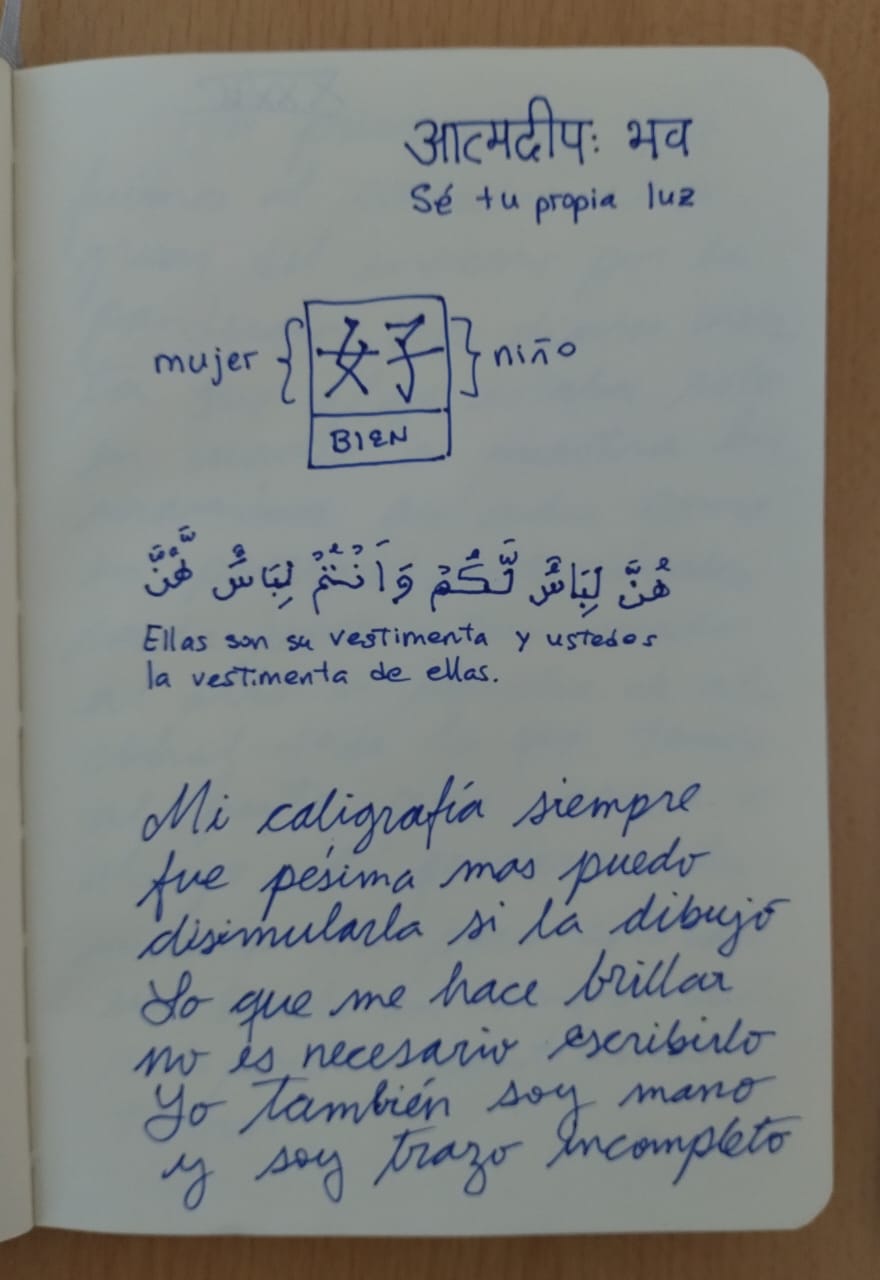 आत्मदीपः भव
Sé tu propia luz
mujer { 女子 } niño
BIEN
هُنَّ لِبَاسٌ لَّكُمْ وَاَنْتُمْ لِبَاسٌ لَّهُنَّ
Ellas son su vestimenta y ustedes
la vestimenta de ellas.
Mi caligrafía siempre
fue pésima mas puedo
disimularla si la dibujo
Lo que me hace brillar
no es necesario escribirlo
Yo también soy mano
y soy trazo incompleto